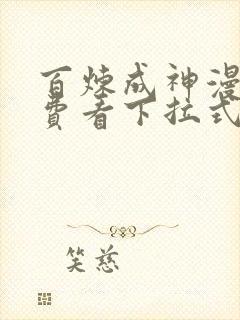 百炼成神漫
费看下拉式
笑慈